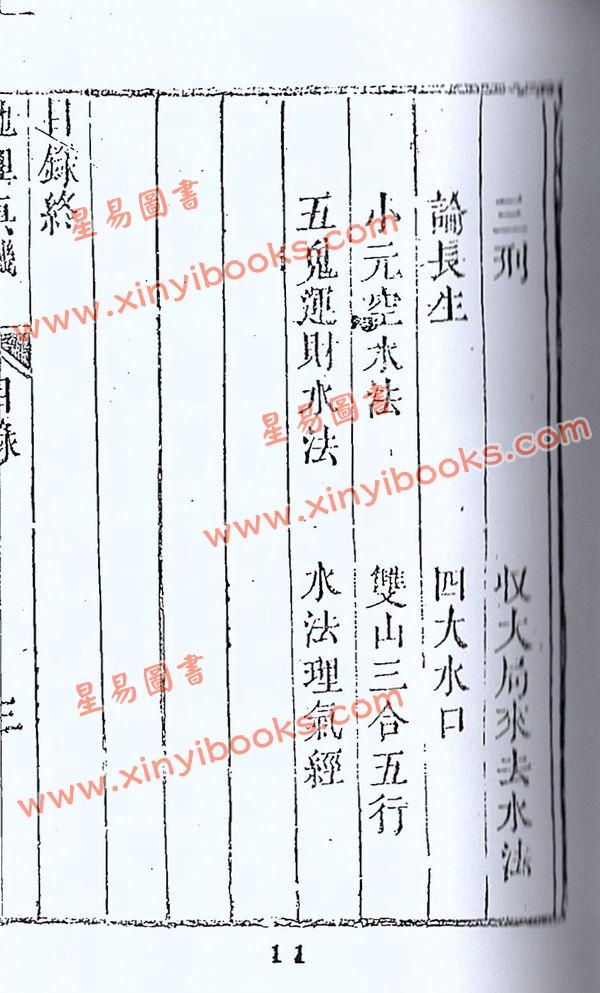 三刑 收大局來去水法
論長生 四大水口
小元空水法 雙山三合五行
五鬼運財水法 水法理氣經
目錄終
地理真機 目錄 三
11
星易圖書
www.xinyibooks.com
星易圖書
www.xinyibooks.com
星易圖書
www.xinyibooks.com